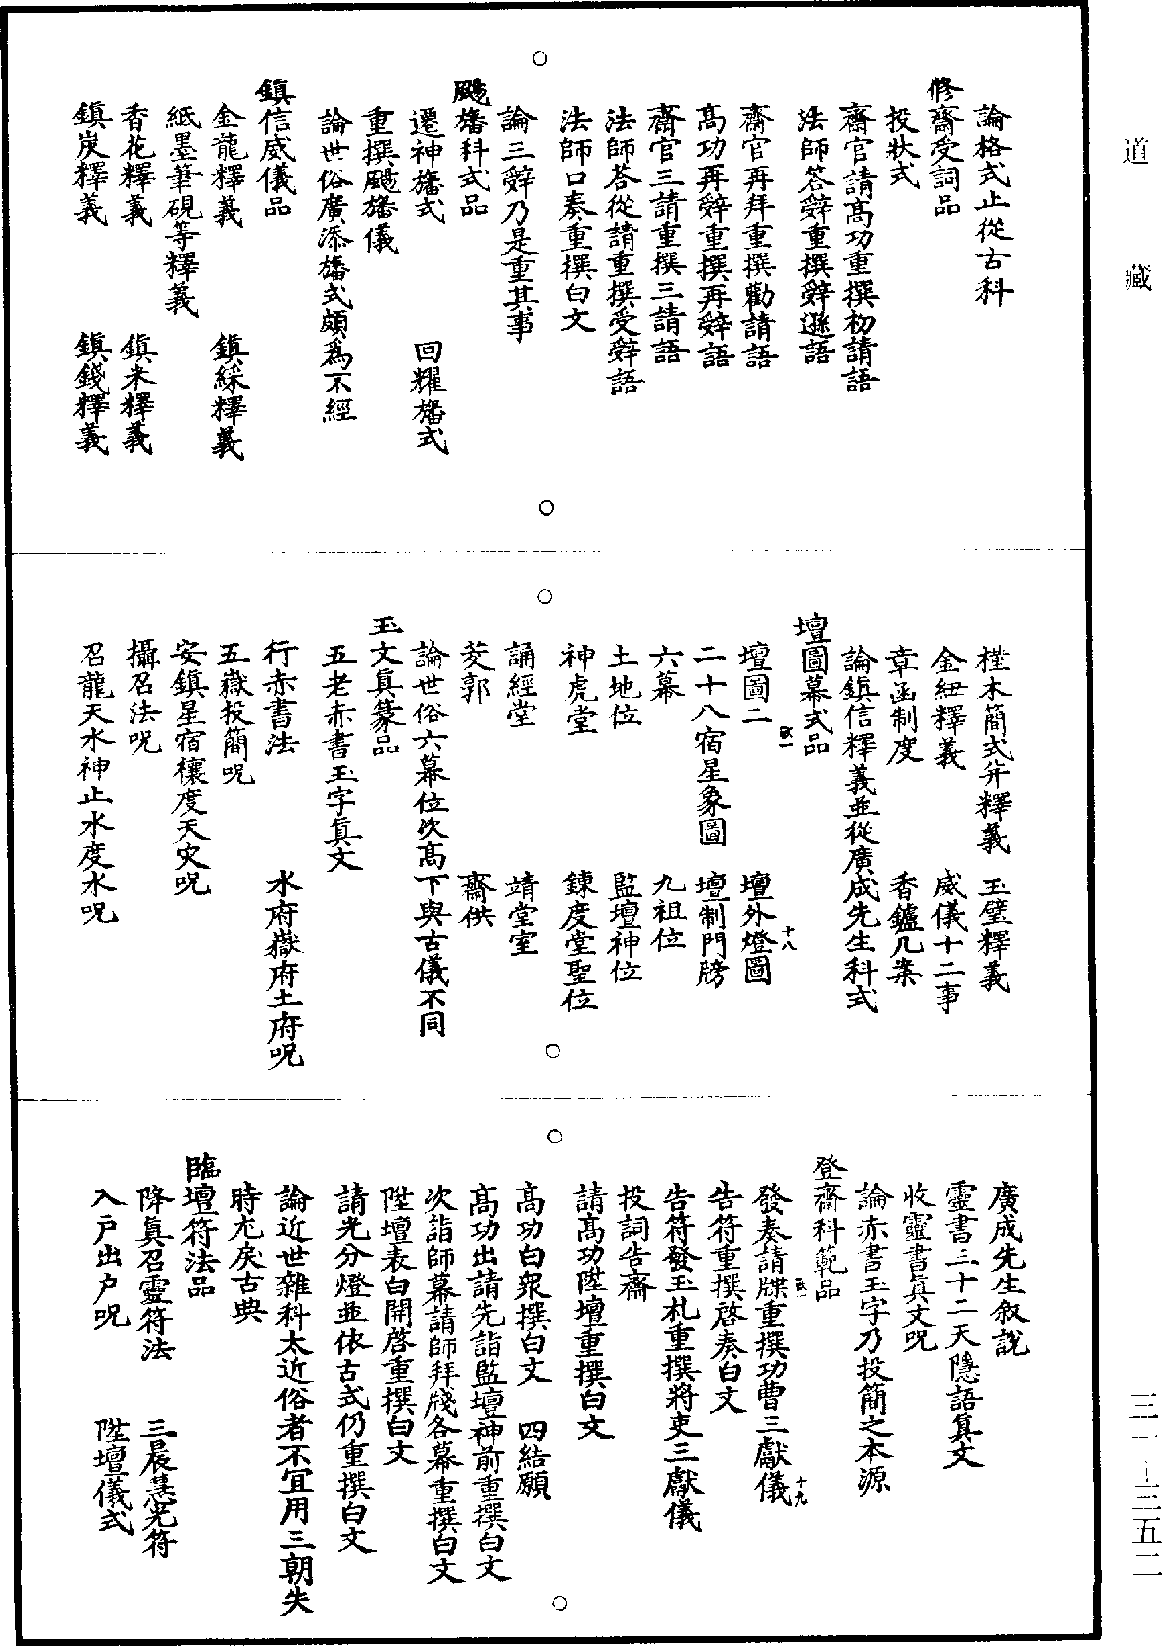 道藏
三一—三五二
論格式止從古科
修齋受詞品
投狀式
齋官請高功重撰初請語
法師答辭重撰辭遜語
齋官再拜重撰勸請語
高功再辭重撰再辭語
齋官三請重撰三請語
法師荅從請重撰受辭語
法師口奏重撰白文
論三辭乃是重其事
颺旛科式品
遷神旛式　回耀旛式
重撰颺旛儀
論世俗廣添旛式頗爲不經
鎮信威儀品
金龍釋義　鎮綵釋義
紙墨筆硯等釋義
香花釋義　鎮米釋義
鎮炭釋義　鎮錢釋義
槿木簡式并釋義　玉璧釋義
金紐釋義　威儀十二事
章函制度　香鑪几案
論鎮信釋義並從廣成先生科式
壇圖幕式品
壇圖二　壇外燈圖十八
二十八宿星象圖　壇制門牓
六幕　九祖位
土地位　監壇神位
神虎堂　鍊度堂聖位
誦經堂　靖堂室
茭郭　齋供
論世俗六幕位次高下與古儀不同
玉文真篆品
五老赤書玉字真文
行赤書法　水府嶽府土府呪
五嶽投簡呪
安鎮星宿禳度天灾呪
攝召法呪
召龍天水神止水度水呪
廣成先生叙說
靈書三十二天隱語真文
收靈書真文呪
論赤書玉字乃投簡之本源
登齋科範品
發奏請牒重撰功曹三獻儀十九
告符重撰啓奏白文
告符發玉札重撰將吏三獻儀
投詞告齋
請高功陞壇重撰白文
高功白衆撰白文　四結願
高功出請先詣監壇神前重撰白文
次詣師幕請師拜牋各幕重撰白文
陞壇表白開啓重撰白文
請光分燈並依古式仍重撰白文
論近世雜科太近俗者不宜用三朝失
時尤戾古典
臨壇符法品
降真召靈符法　三晨慧光符
入戸出户呪　陞壇儀式